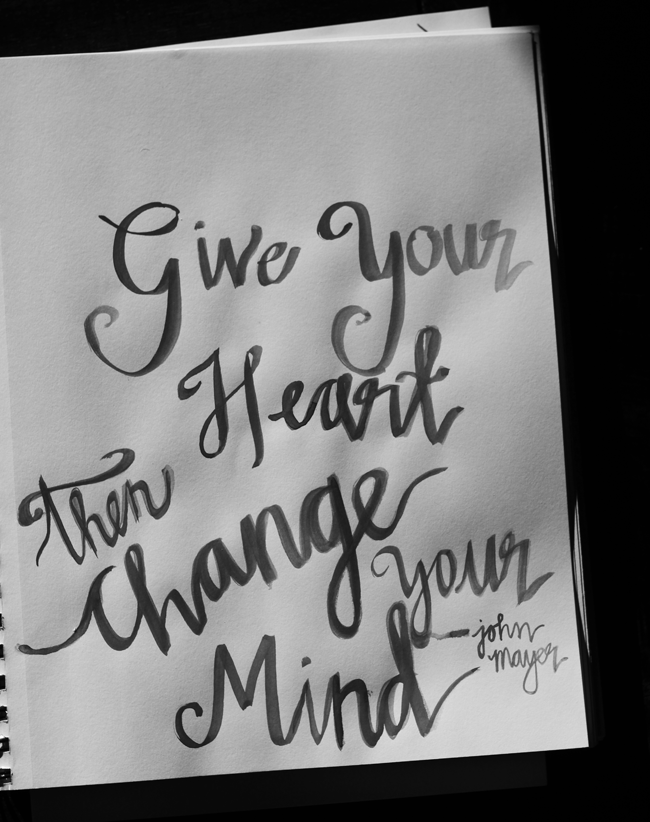 Give Your
Heart
then
Change
your
Mind
- john
mayer